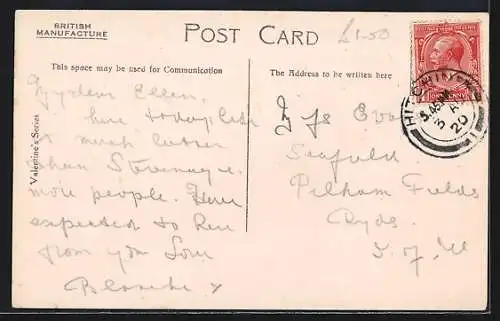 BRITISH
MANUFACTURE
POST CARD
£1.50
This space may be used for Communication
The Address to be written here
Valentine's Series
My dear Ellen
here today
much better
than Stevenage
more people. Have
expected to hear
from you Love
Blanche x
Seafield
Pelham Fields
Ryde
I. of W
ONE PENNY
HITCHIN
3 20